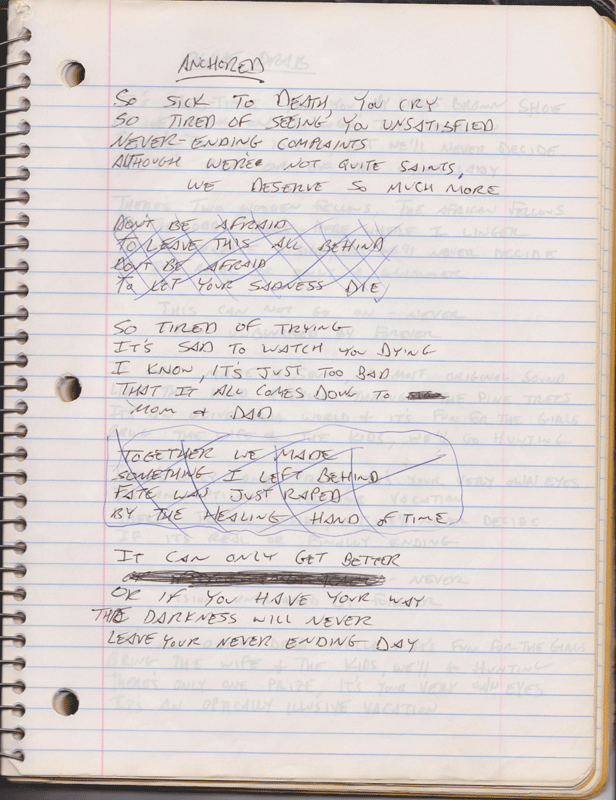 ANCHORED
SO SICK TO DEATH, YOU CRY
SO TIRED OF SEEING YOU UNSATISFIED
NEVER-ENDING COMPLAINTS
ALTHOUGH WE'RE NOT QUITE SAINTS,
WE DESERVE SO MUCH MORE
DON'T BE AFRAID
TO LEAVE THIS ALL BEHIND
DON'T BE AFRAID
TO LET YOUR SADNESS DIE
SO TIRED OF TRYING
IT'S SAD TO WATCH YOU DYING
I KNOW, IT'S JUST TOO BAD
THAT IT ALL COMES DOWN TO
MOM & DAD
TOGETHER WE MADE
SOMETHING I LEFT BEHIND
FATE WAS JUST RAPED
BY THE HEALING HAND OF TIME
IT CAN ONLY GET BETTER
OR IF YOU HAVE YOUR WAY
THE DARKNESS WILL NEVER
LEAVE YOUR NEVER ENDING DAY